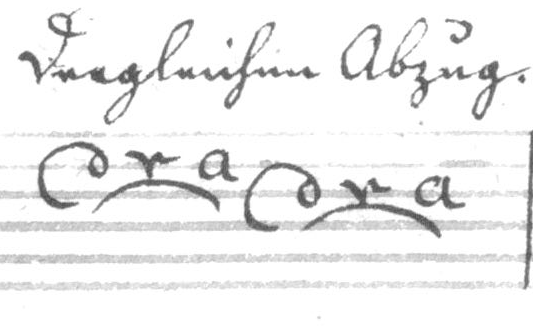 Dergleichen Abzug.
r a r a